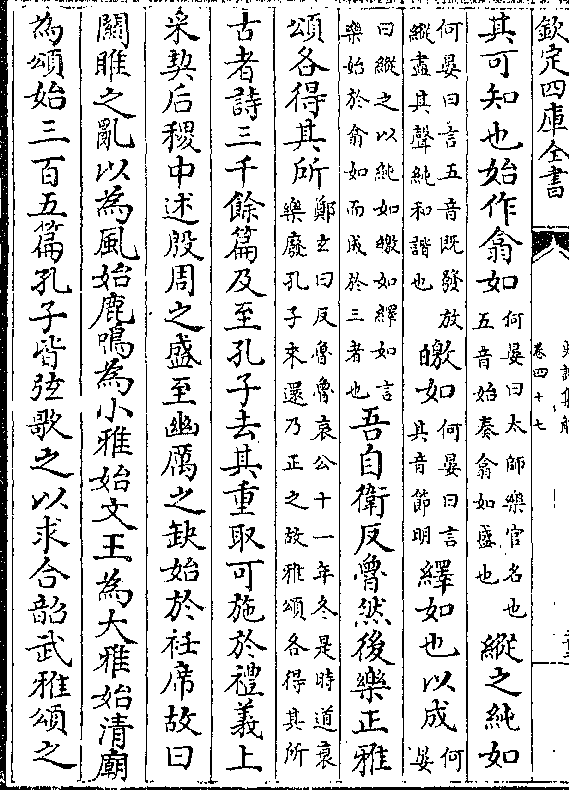 欽定四庫全書
卷四十七
其可知也始作翕如何晏曰太師樂官名也五音始奏翕如盛也縱之純如
何晏曰言五音既發放縱盡其聲純和諧也皦如何晏曰言其音節明繹如也以成何晏
曰縱之以純如皦如繹如言樂始於翕如而成於三者也吾自衛反魯然後樂正雅
頌各得其所鄭玄曰反魯魯哀公十一年冬是時道衰樂廢孔子來還乃正之故雅頌各得其所
古者詩三千餘篇及至孔子去其重取可施於禮義上
采契后稷中述殷周之盛至幽厲之缺始於衽席故曰
關雎之亂以為風始鹿鳴為小雅始文王為大雅始清廟
為頌始三百五篇孔子皆弦歌之以求合韶武雅頌之